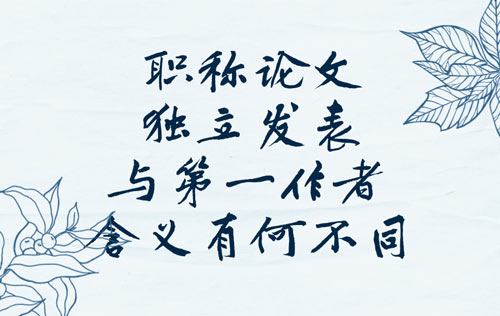 职称论文
独立发表
与第一作者
含义有何不同